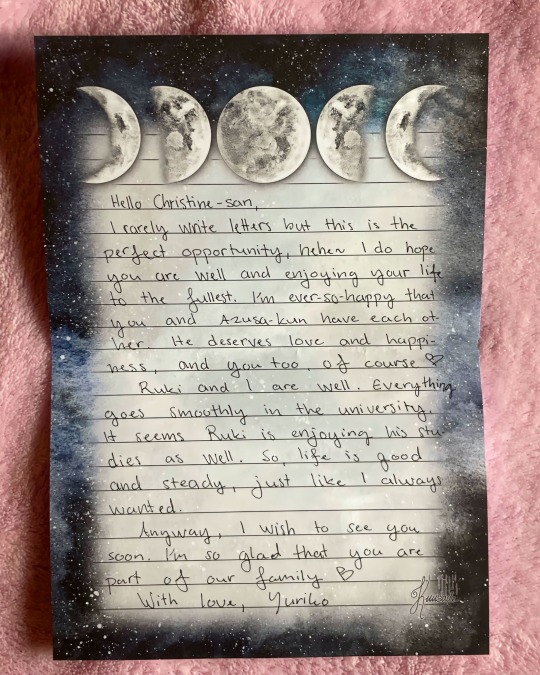 Hello Christine-san,
I rarely write letters but this is the
perfect opportunity, hehe~ I do hope
you are well and enjoying your life
to the fullest. I'm ever-so-happy that
you and Azusa-kun have each ot-
her. He deserves love and happi-
ness, and you too, of course ♡
Ruki and I are well. Everything
goes smoothly in the university.
It seems Ruki is enjoying his stu-
dies as well. So, life is good
and steady, just like I always
wanted.
Anyway, I wish to see you
soon. I'm so glad that you are
part of our family ♡
With love, Yuriko